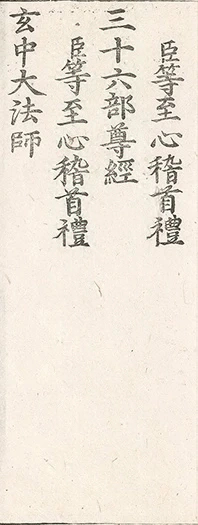 臣等至心稽首禮
三十六部尊經
臣等至心稽首禮
玄中大法師